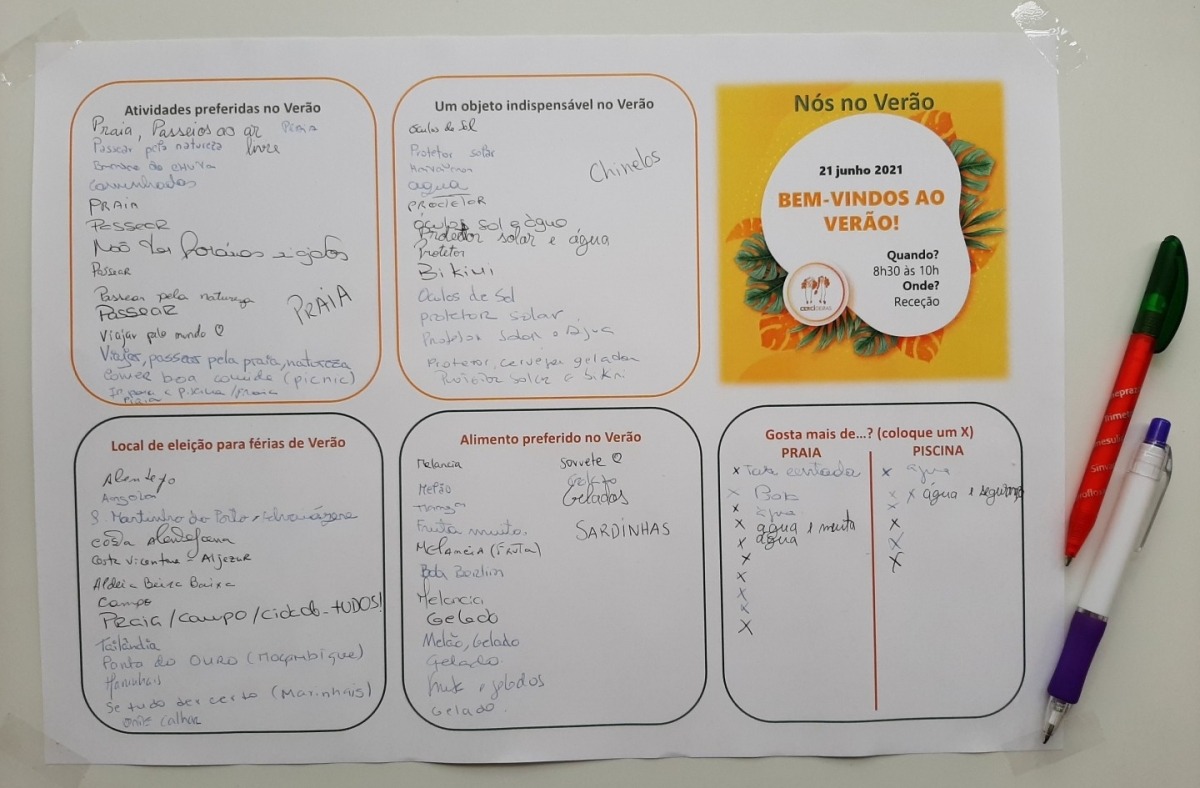 Atividades preferidas no Verão
Praia, Passeios ao ar livre
Praia
Passear pela natureza
Caminhadas
PRAIA
PASSEAR
Passear
Passear pela natureza
PASSEAR
PRAIA
Viajar pelo mundo ♡
Viajar, passear pela praia, natureza
Comer boa comida (picnic)
Ir para a piscina/praia
Praia
Um objeto indispensável no Verão
Óculos de Sol
Protetor solar
Chinelos
água
PROTETOR
óculos sol e água
Protetor solar e água
Protetor
Bikini
Oculos de Sol
protetor solar
Protetor Solar e Água
Protetor, cerveja gelada
Protetor solar e bikni
Nós no Verão
21 junho 2021
BEM-VINDOS AO
VERÃO!
Quando?
8h30 às 10h
Onde?
Receção
Local de eleição para férias de Verão
Alentejo
Angola
S. Martinho do Porto
Costa Alentejana
Costa Vicentina - Aljezur
Aldeia Beira Baixa
Campo
PRAIA/campo/cidade - TUDO!
Tailândia
Ponta do OURO (Moçambique)
Se tudo der certo (Marinhais)
onde calhar
Alimento preferido no Verão
Melancia
sorvete ♡
Melão
Gelados
Fruta muita.
SARDINHAS
MELANCIA (FRUTA)
Bola Berlim
Melancia
Gelado
Melão, Gelado
Gelado
Gelado.
Gosta mais de...? (coloque um X)
PRAIA PISCINA
x
x água
x
x x água e segurança
x água
x
x água e muita água
x
x
x
x
x
x
x
x
x